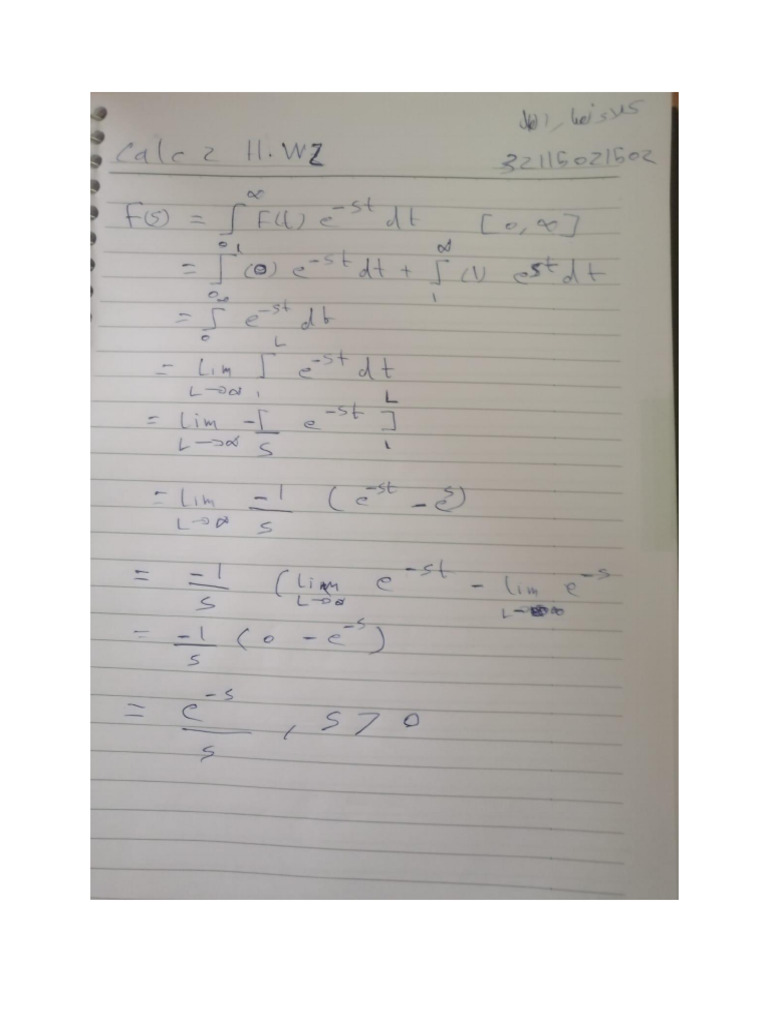 Calc 2 H.W2
32115021502
F(s) = ∫₀^∞ F(t) e^-st dt [0, ∞]
= ∫₀^1 (0) e^-st dt + ∫₁^∞ (1) e^st dt
= ∫₀^∞ e^-st dt
= Lim L→∞ ∫₁^L e^-st dt
= Lim L→∞ -[/s e^-st ]₁^L
= Lim L→∞ -1/s (e^-st - e^s)
= -1/s (Lim L→∞ e^-st - Lim L→∞ e^-s
= -1/s (0 - e^-s)
= e^-s/s , s > 0